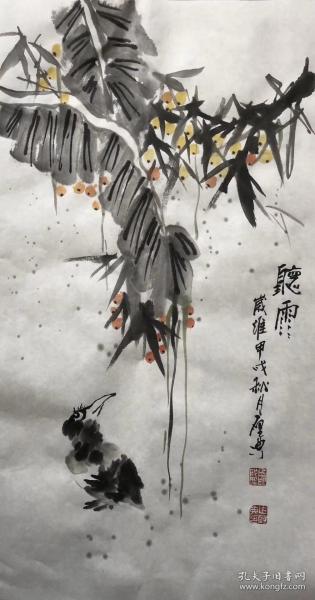 聽雨
歲維甲戌秋月
孔夫子旧书网
@www.kongfz.com